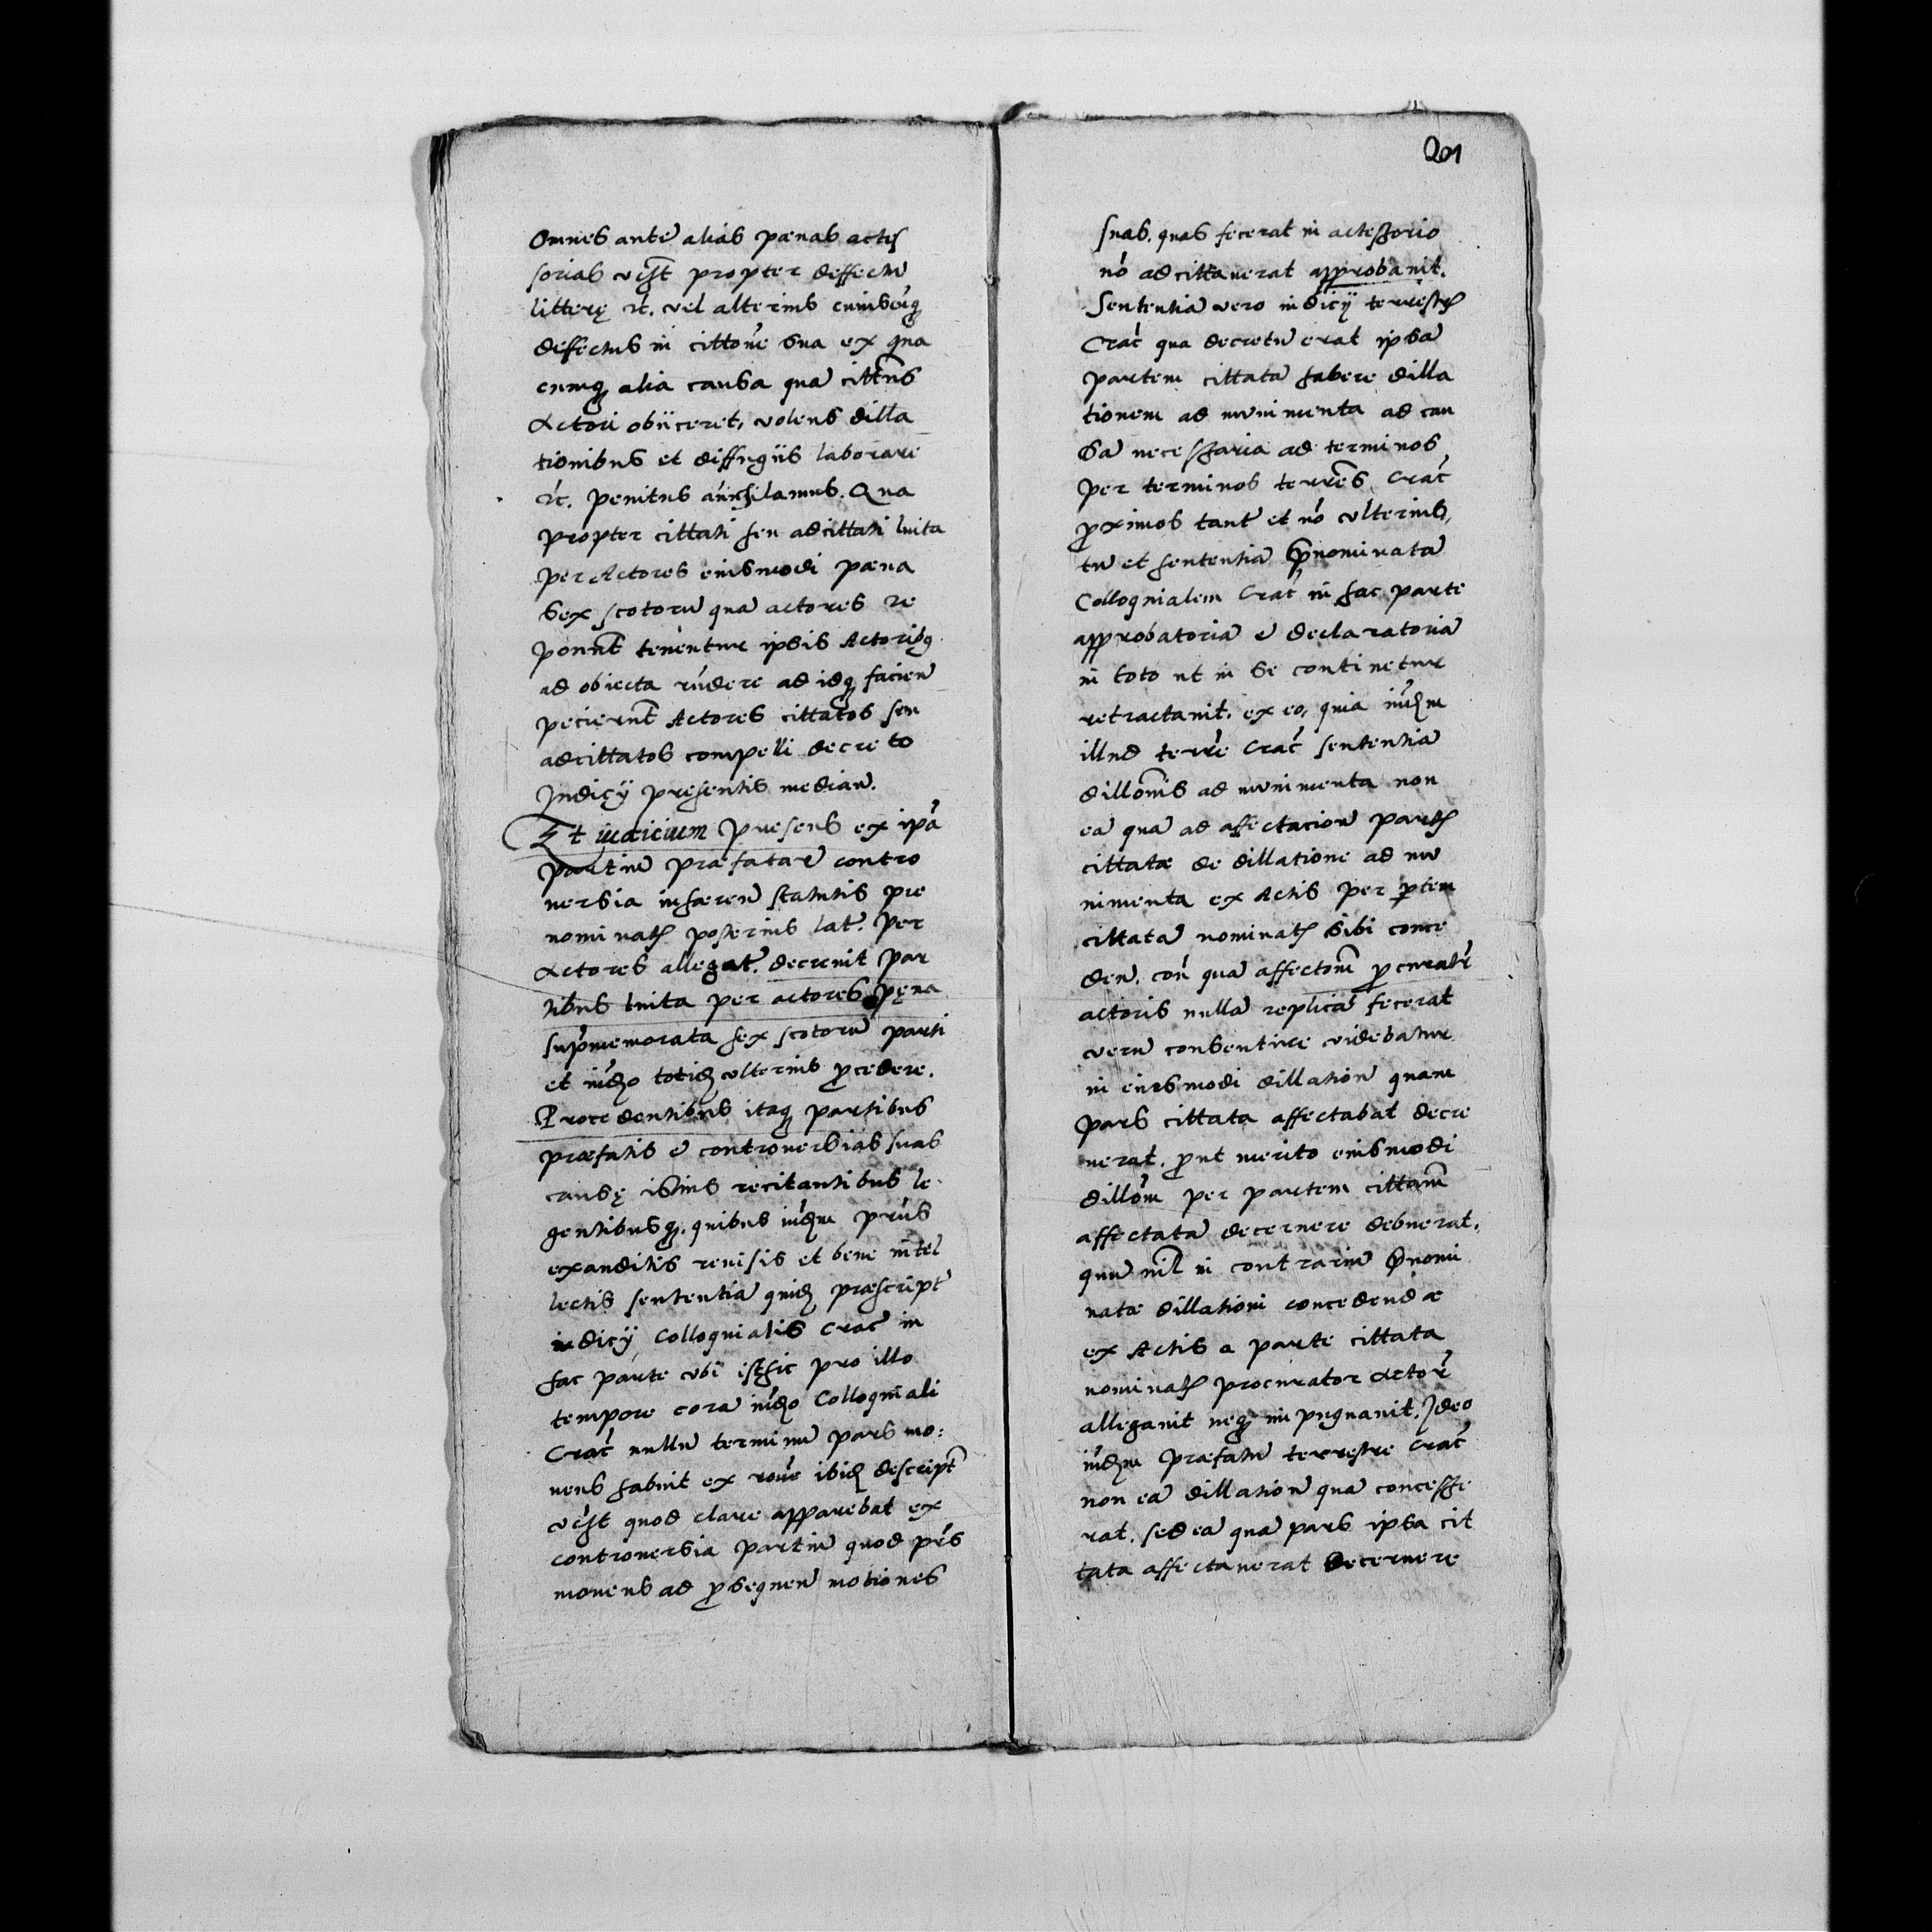 Omnes ante aliàs pænas actes
sorias vcist propter deffectu
litterę rc. vel alterius cuiuscuq
defectus in cittone sua ex qua
cunq alia causa qua cittus
Actori obiiceret, volens dilla
tionibus et diffugiis laborare
rc. penitus anichilamus. Qua
propter cittati seu adcittati luita
per Actores eiusmodi pæna
sex scotoru qua actores re
ponut tenentur ipsis Actoribq
ad obiecta rndere ad idq facien
pecierut Actores cittatos seu
adcittatos compelli decreto
Judicij presentis median.
Et iudicium presens ex ipa
partiu præfatar contro
uersia inhæren statutis pre
nominat posterius lat. per
Actores allegat. decreuit par
tibus luita per actores pęna
supmemorata sex scotoru parti
et iudzo totid vlterius pcedere.
Procedentibus itaq partibus
præfatis e controuersias suas
causę istius recitantibus le
gentibusq. quibus iudzm prius
exauditis reuisis et bene intel
lectis sententia quid præscript
iudicij Colloquialis Crac in
hac parte vbi isthic pro illo
tempore cora iudzo Colloquiali
Crac nullu terminu pars mo:
uens habuit ex rone ibid descript
vcist quod clare apparebat ex
controuersia partiu quod prs
mouens ad psequen motiones
201
suas. quas fecerat in actessorio
no adcittauerat approbauit.
Sententia vero iudicij terrestr
Crac qua decretu erat ipsa
partem cittata habere dilla
tionem ad munimenta ad cau
sa necessaria ad terminos
per terminos terres Crac
pximos tant et no vlterius,
tu et sententia pnominata
Colloquialem Crac in hac parte
approbatoria e declaratoria
in toto ut in se continetur
retractauit. ex eo, quia iudzm
illud terre Crac sententia
dillonis ad munimenta non
ea qua ad affectacion partis
cittatæ de dillatione ad mu
nimenta ex Actis per ptem
cittata nominat sibi conce
den. con qua affectone pcurator
actoris nulla replica fecerat
veru consentire videbatur
in eiusmodi dillation quam
pars cittata affectabat decre
uerat. put merito eiusmodi
dillom per partem cittam
affectata decernere debuerat.
quu nil in contrariu pnomi
natæ dillationi concedendæ
ex Actis a parte cittata
nominat procurator Actor
allegauit neq impugnauit. Ideo
iudzm præfatu terrestre Crac
non ea dillation qua concesse
rat. sed ea qua pars ipsa cit
tata affectauerat decernere